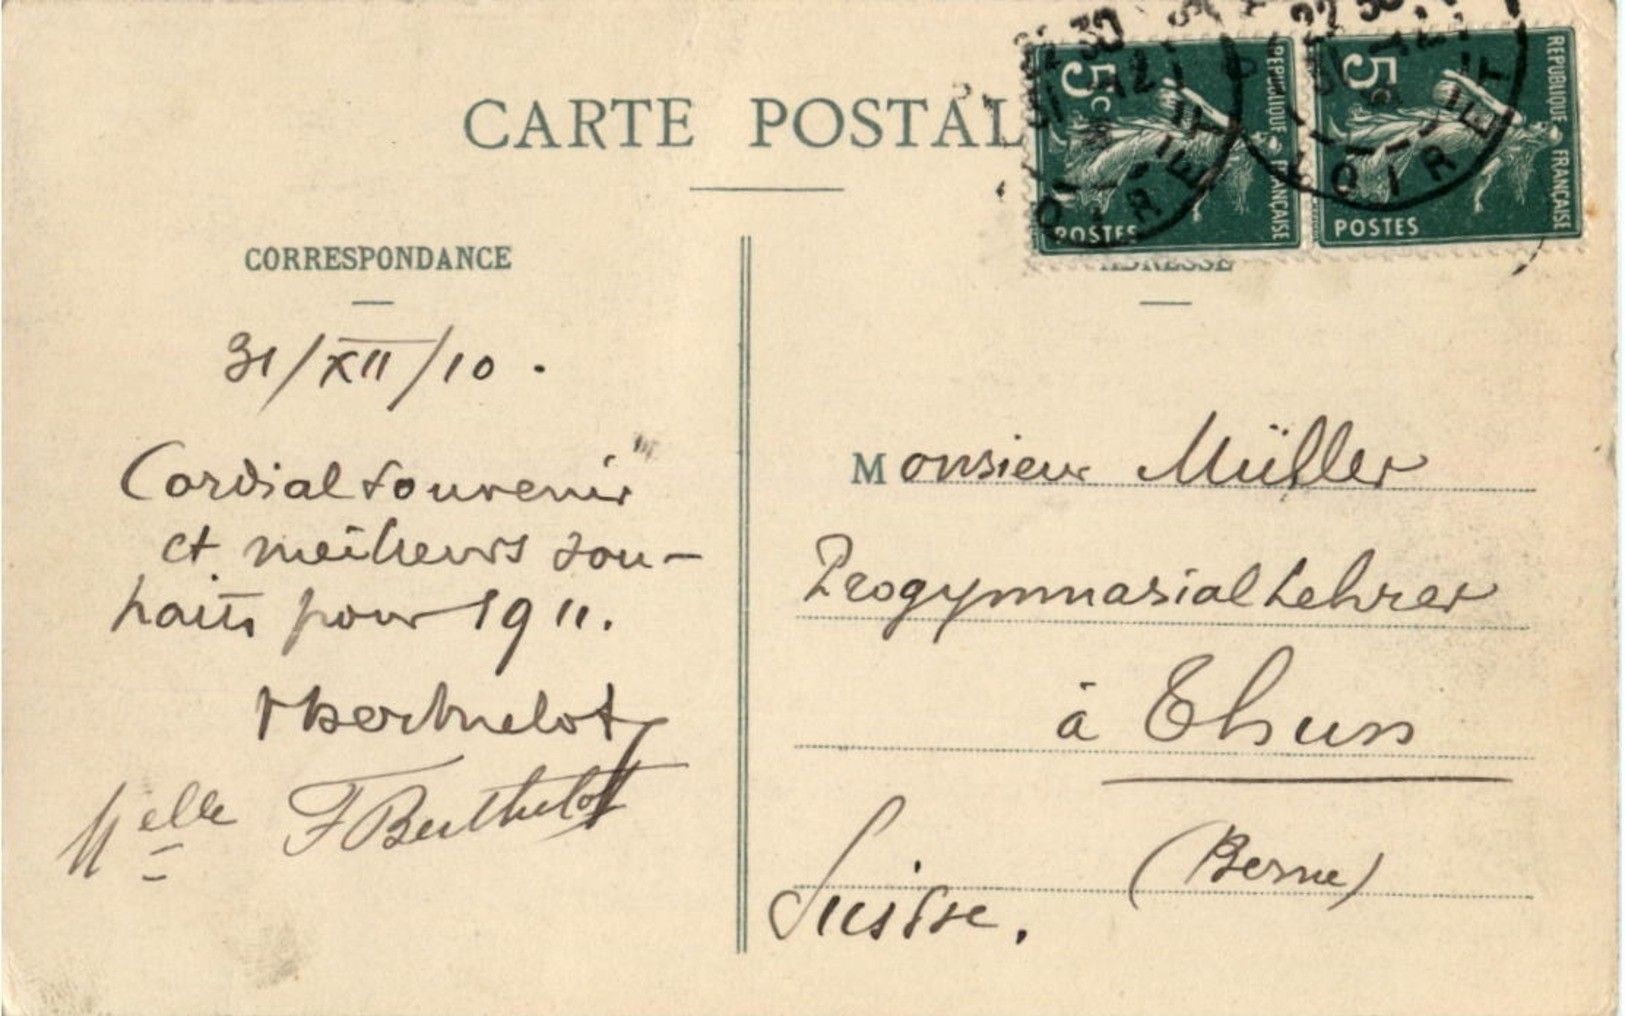 CARTE POSTALE
5c
REPUBLIQUE FRANÇAISE
POSTES
5c
REPUBLIQUE FRANÇAISE
POSTES
LOIRET
CORRESPONDANCE
31/XII/10.
Cordial souvenir
et meilleurs sou-
haits pour 1911.
Berthelot
Melle F Berthelot
ADRESSE
Monsieur Müller
Progymnasiallehrer
à Thun
(Berne)
Suisse.